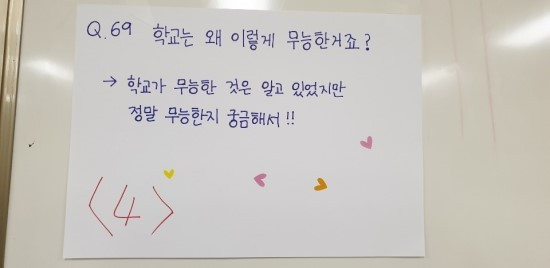 Q.69 학교는 왜 이렇게 무능한거죠?
→ 학교가 무능한 것은 알고 있었지만
정말 무능한지 궁금해서!!
〈4〉